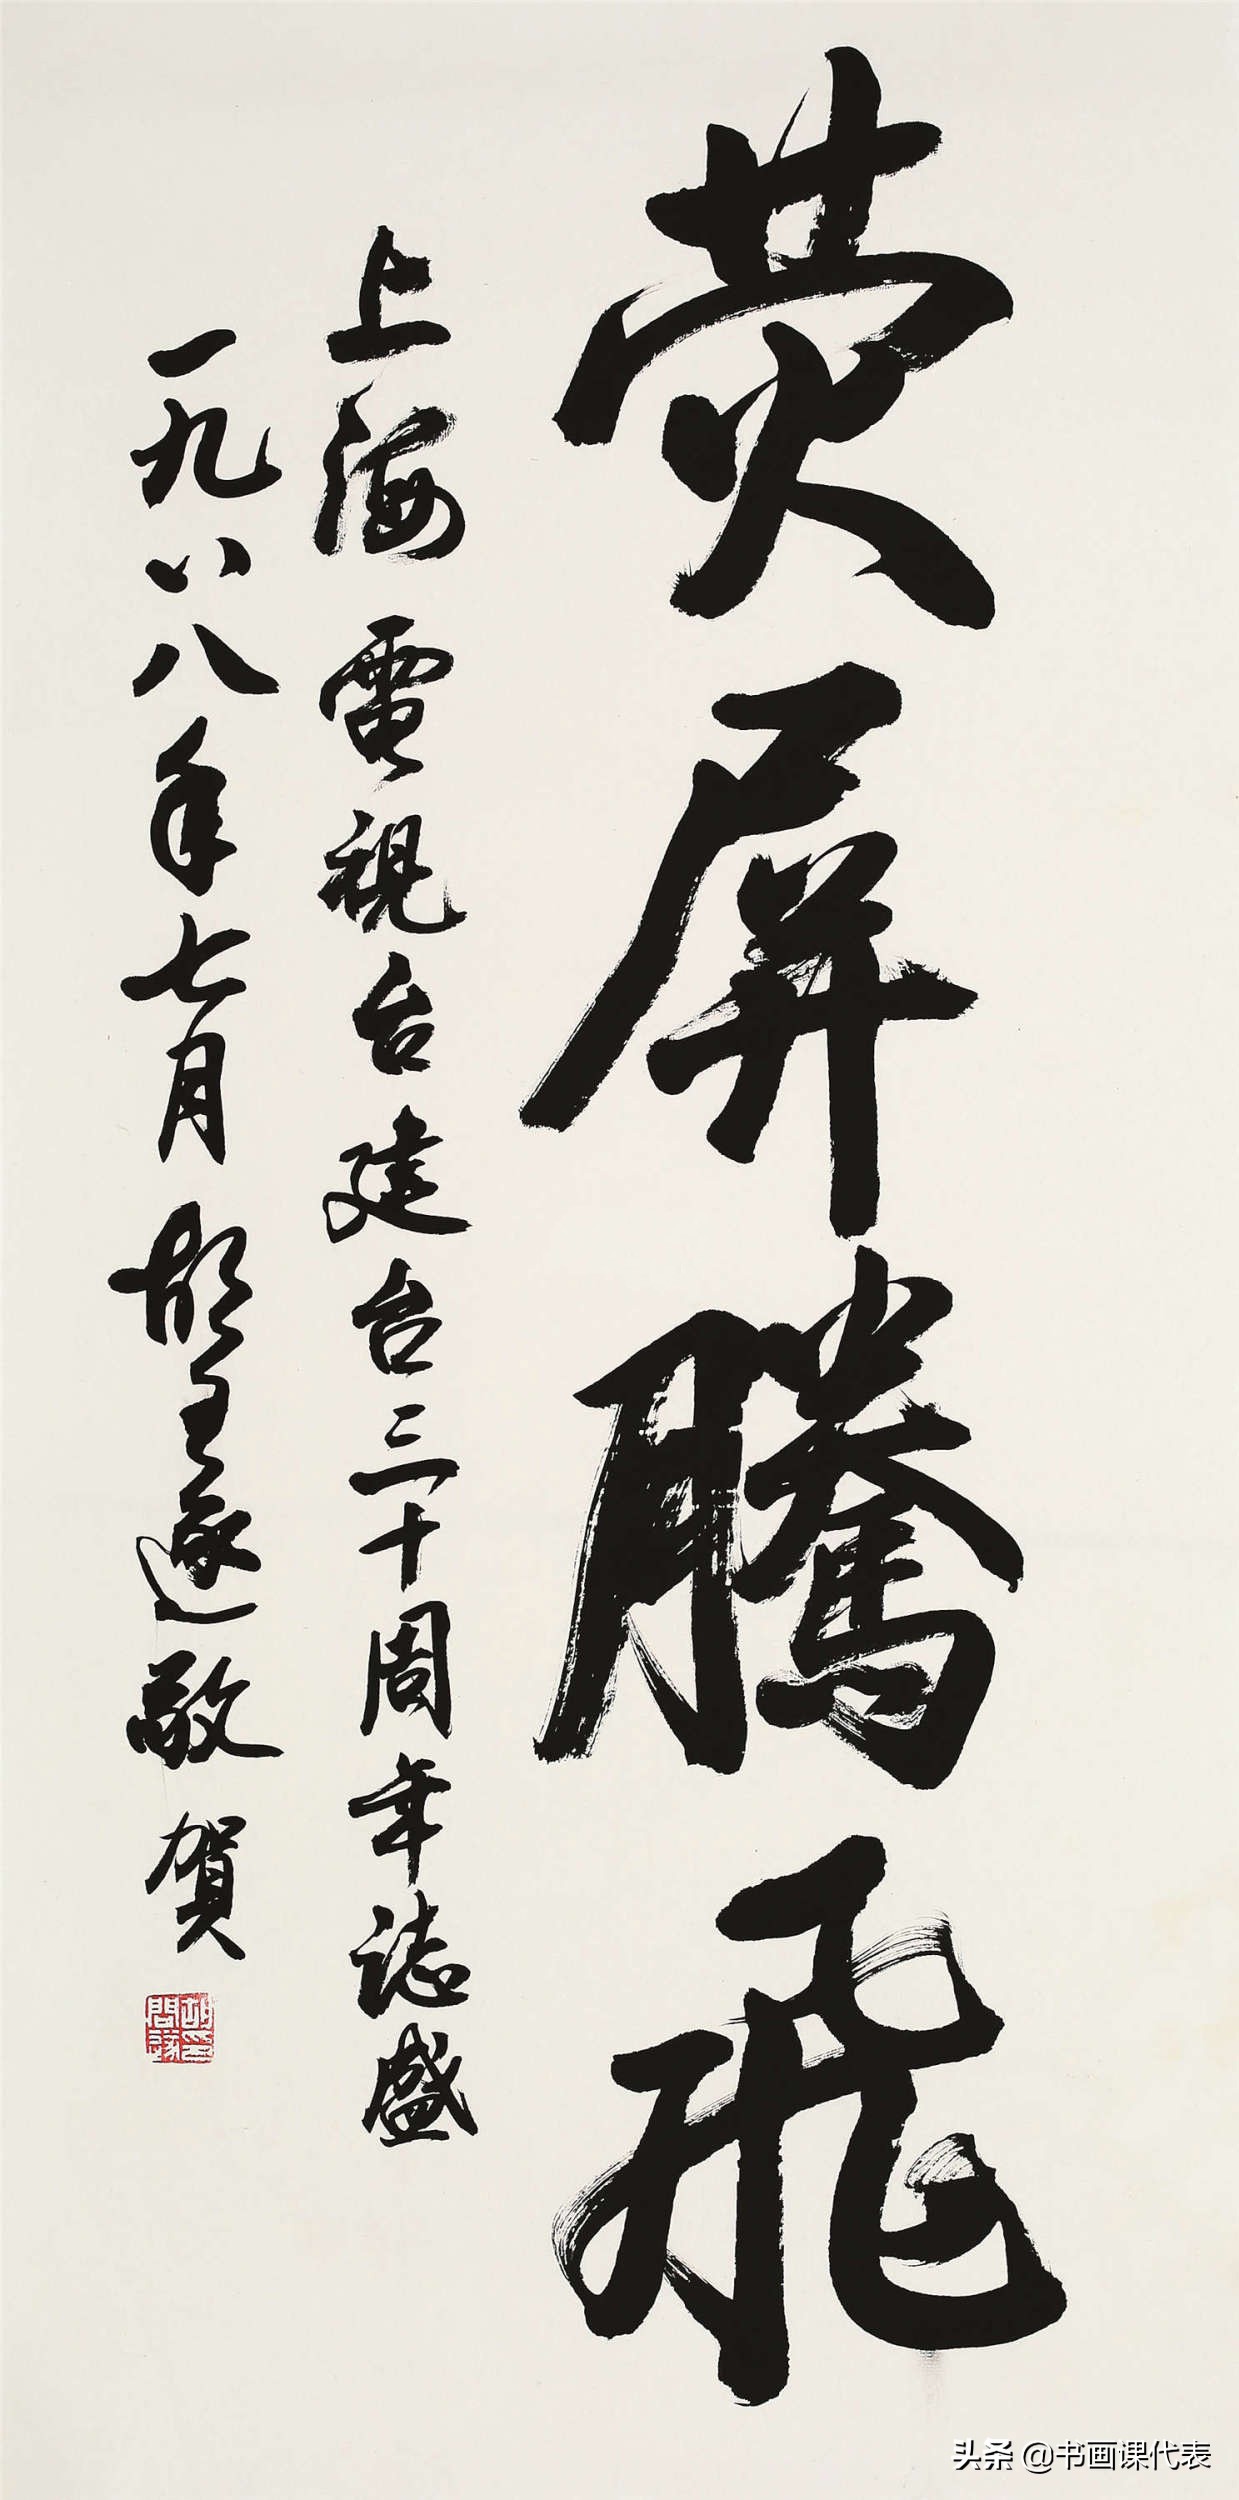 荧屏腾飛
上海電視台建台三十周年誌盛
一九八八年七月 胡问遂敬賀
胡問遂印
头条 @书画课代表